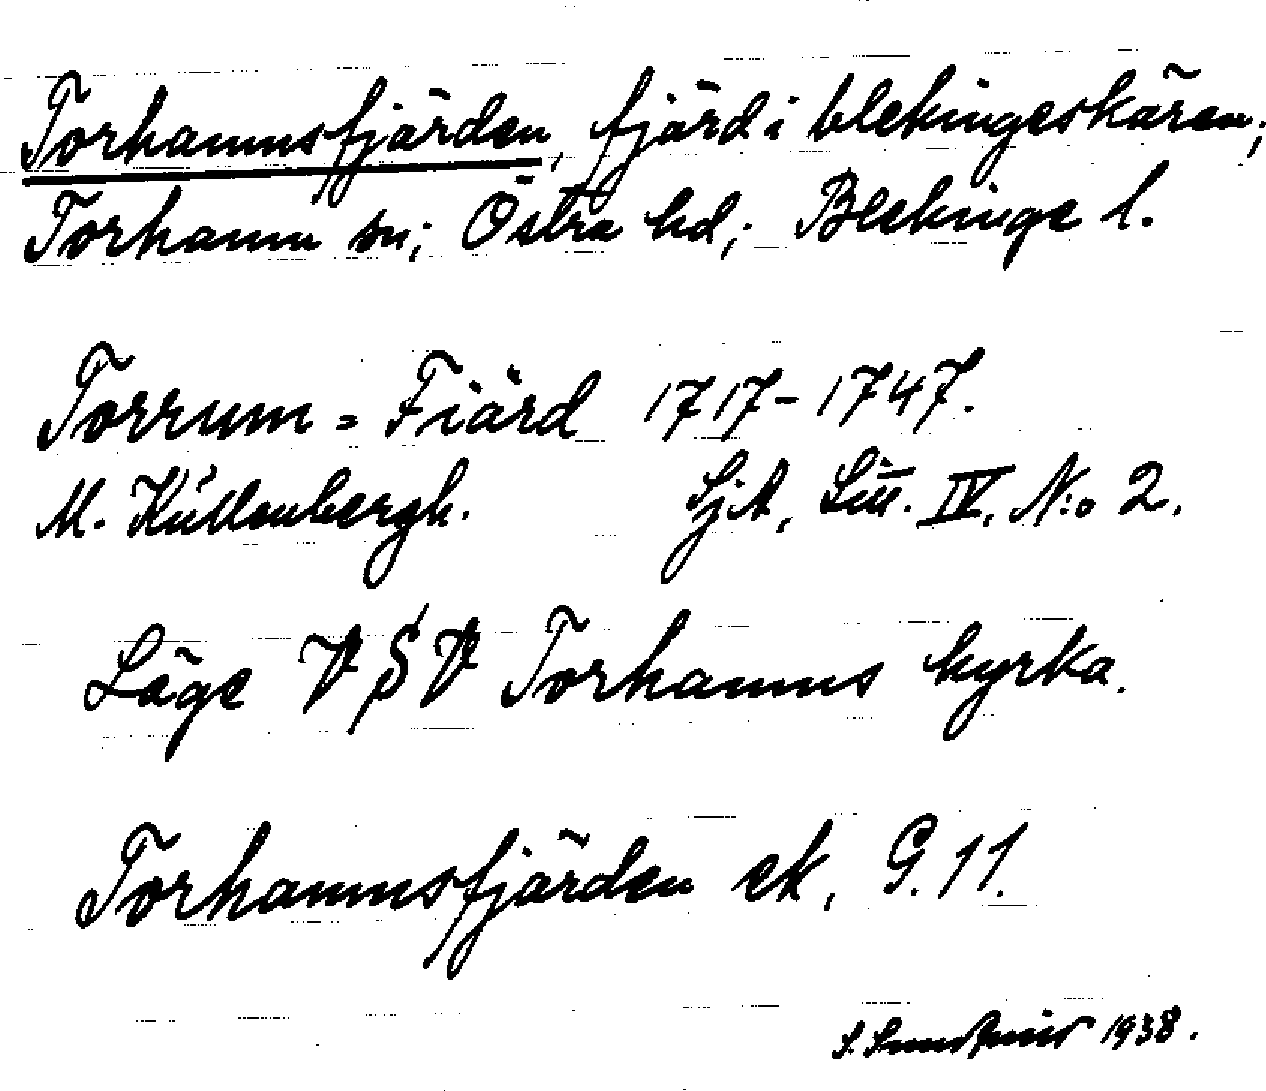 Torhamnsfjärden, fjärd i blekingeskären;
Torhamn sn; Östra hd; Blekinge l.
Torrum = Fiärd 1717-1747.
M. Küllenbergh. SjA, Litt. IV, N:o 2.
Läge VSV Torhamns kyrka.
Torhamnsfjärden ek, G. 11.
S. 1938.